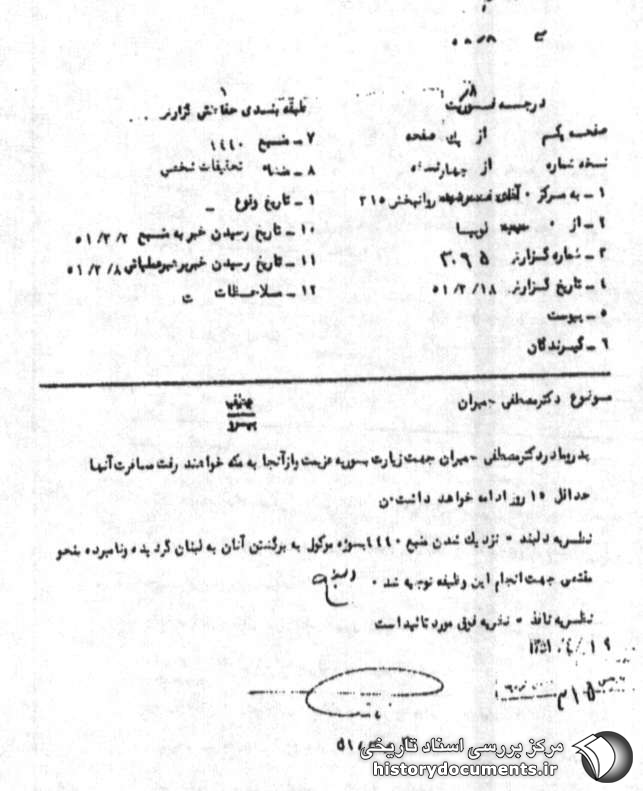 درجه فوریت
طبقه بندی حفاظتی گزارش
صفحه یکم از یک صفحه
نسخه شماره از چهار نسخه
۱ - به مرکز ۰ آقای روانبخش ۲۱۵
۲ - از ۰
۳ - شماره گزارش ۳۰۹۵
۴ - تاریخ گزارش ۵۱/۳/۱۸
۵ - پیوست
۶ - گیرندگان
۷ - منبع ۱۴۴۰
۸ - منشاء تحقیقات شخصی
۹ - تاریخ وقوع _
۱۰ - تاریخ رسیدن خبر به منبع ۵۱/۳/۲
۱۱ - تاریخ رسیدن خبر برهبر عملیاتی ۵۱/۳/۸
۱۲ - ملاحظات
موضوع دکتر مصطفی چمران
پدر و مادر دکتر مصطفی چمران جهت زیارت بسوریه عزیمت و از آنجا به مکه خواهند رفت مسافرت آنها
حداقل ۱۵ روز ادامه خواهد داشت.ن
نظریه دلبند ۰ نزدیک شدن منبع ۴۴۴۰ بسوژه موکول به برگشتن آنان به لبنان گردیده و نامبرده بنحو
مقتضی جهت انجام این وظیفه توجیه شد ۰
نظریه نافذ ۰ نظریه فوق مورد تائید است
مرکز بررسی اسناد تاریخی
historydocuments.ir